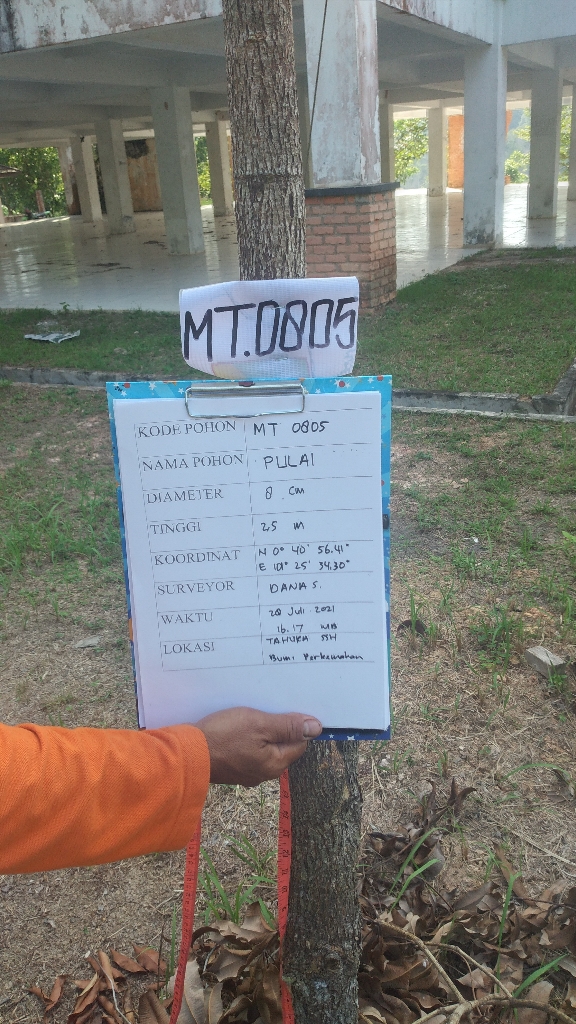 MT.0805
KODE POHON MT 0805
NAMA POHON PULAI
DIAMETER 8 cm
TINGGI 25 m
KOORDINAT N 0° 40' 56.41"
E 101° 25' 34.30"
SURVEYOR DANA S.
WAKTU 28 Juli 2021
16.17 WIB
LOKASI TAHURA SSH
Bumi Perkemahan